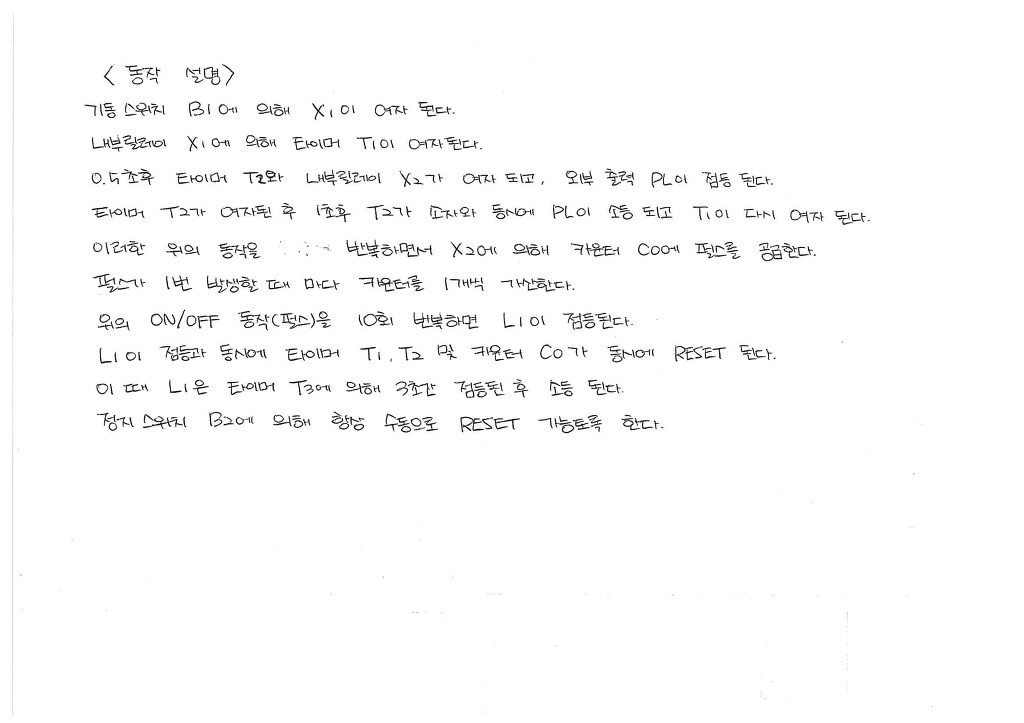 < 동작 설명>
기동스위치 B1에 의해 X1이 여자 된다.
내부릴레이 X1에 의해 타이머 T1이 여자된다.
0.5초후 타이머 T2와 내부릴레이 X2가 여자 되고, 외부 출력 PL이 점등 된다.
타이머 T2가 여자된 후 1초후 T2가 소자와 동시에 PL이 소등 되고 T1이 다시 여자 된다.
이러한 위의 동작을 반복하면서 X2에 의해 카운터 C0에 펄스를 공급한다.
펄스가 1번 발생할 때 마다 카운터를 1개씩 가산한다.
위의 ON/OFF 동작(펄스)을 10회 반복하면 L1이 점등된다.
L1이 점등과 동시에 타이머 T1, T2 및 카운터 C0가 동시에 RESET 된다.
이 때 L1은 타이머 T3에 의해 3초간 점등된 후 소등 된다.
정지스위치 B2에 의해 항상 수동으로 RESET 가능토록 한다.